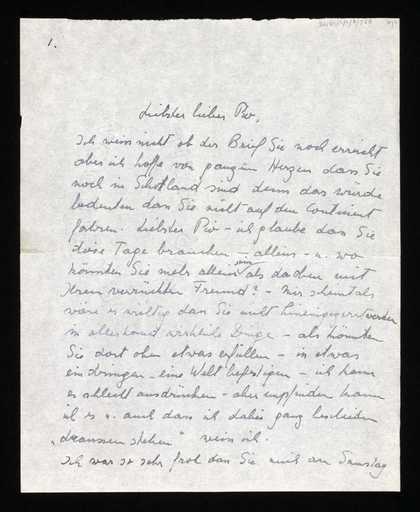 1.
Liebster lieber Piv,
Ich weiss nicht ob der Brief Sie noch erreicht
aber ich hoffe von ganzem Herzen dass Sie
noch in Schottland sind denn das würde
bedeuten dass Sie nicht auf den Continent
fahren. Liebster Piv - ich glaube dass Sie
diese Tage brauchen - allein - u. wo
könnten Sie mehr allein sein als da oben mit
Ihrem verrückten Freund? - Mir scheint als
wäre es wichtig dass Sie nicht hineingezerrt werden
in allerhand wirkliche Dinge - als könnten
Sie dort oben etwas erfüllen - in etwas
eindringen - eine Welt befestigen - ich kann
es schlecht ausdrücken - aber empfinden kann
ich es u. auch dass ich dabei ganz bescheiden
„draussen stehen" weiss ich.
Ich war so sehr froh dass Sie mich am Samstag